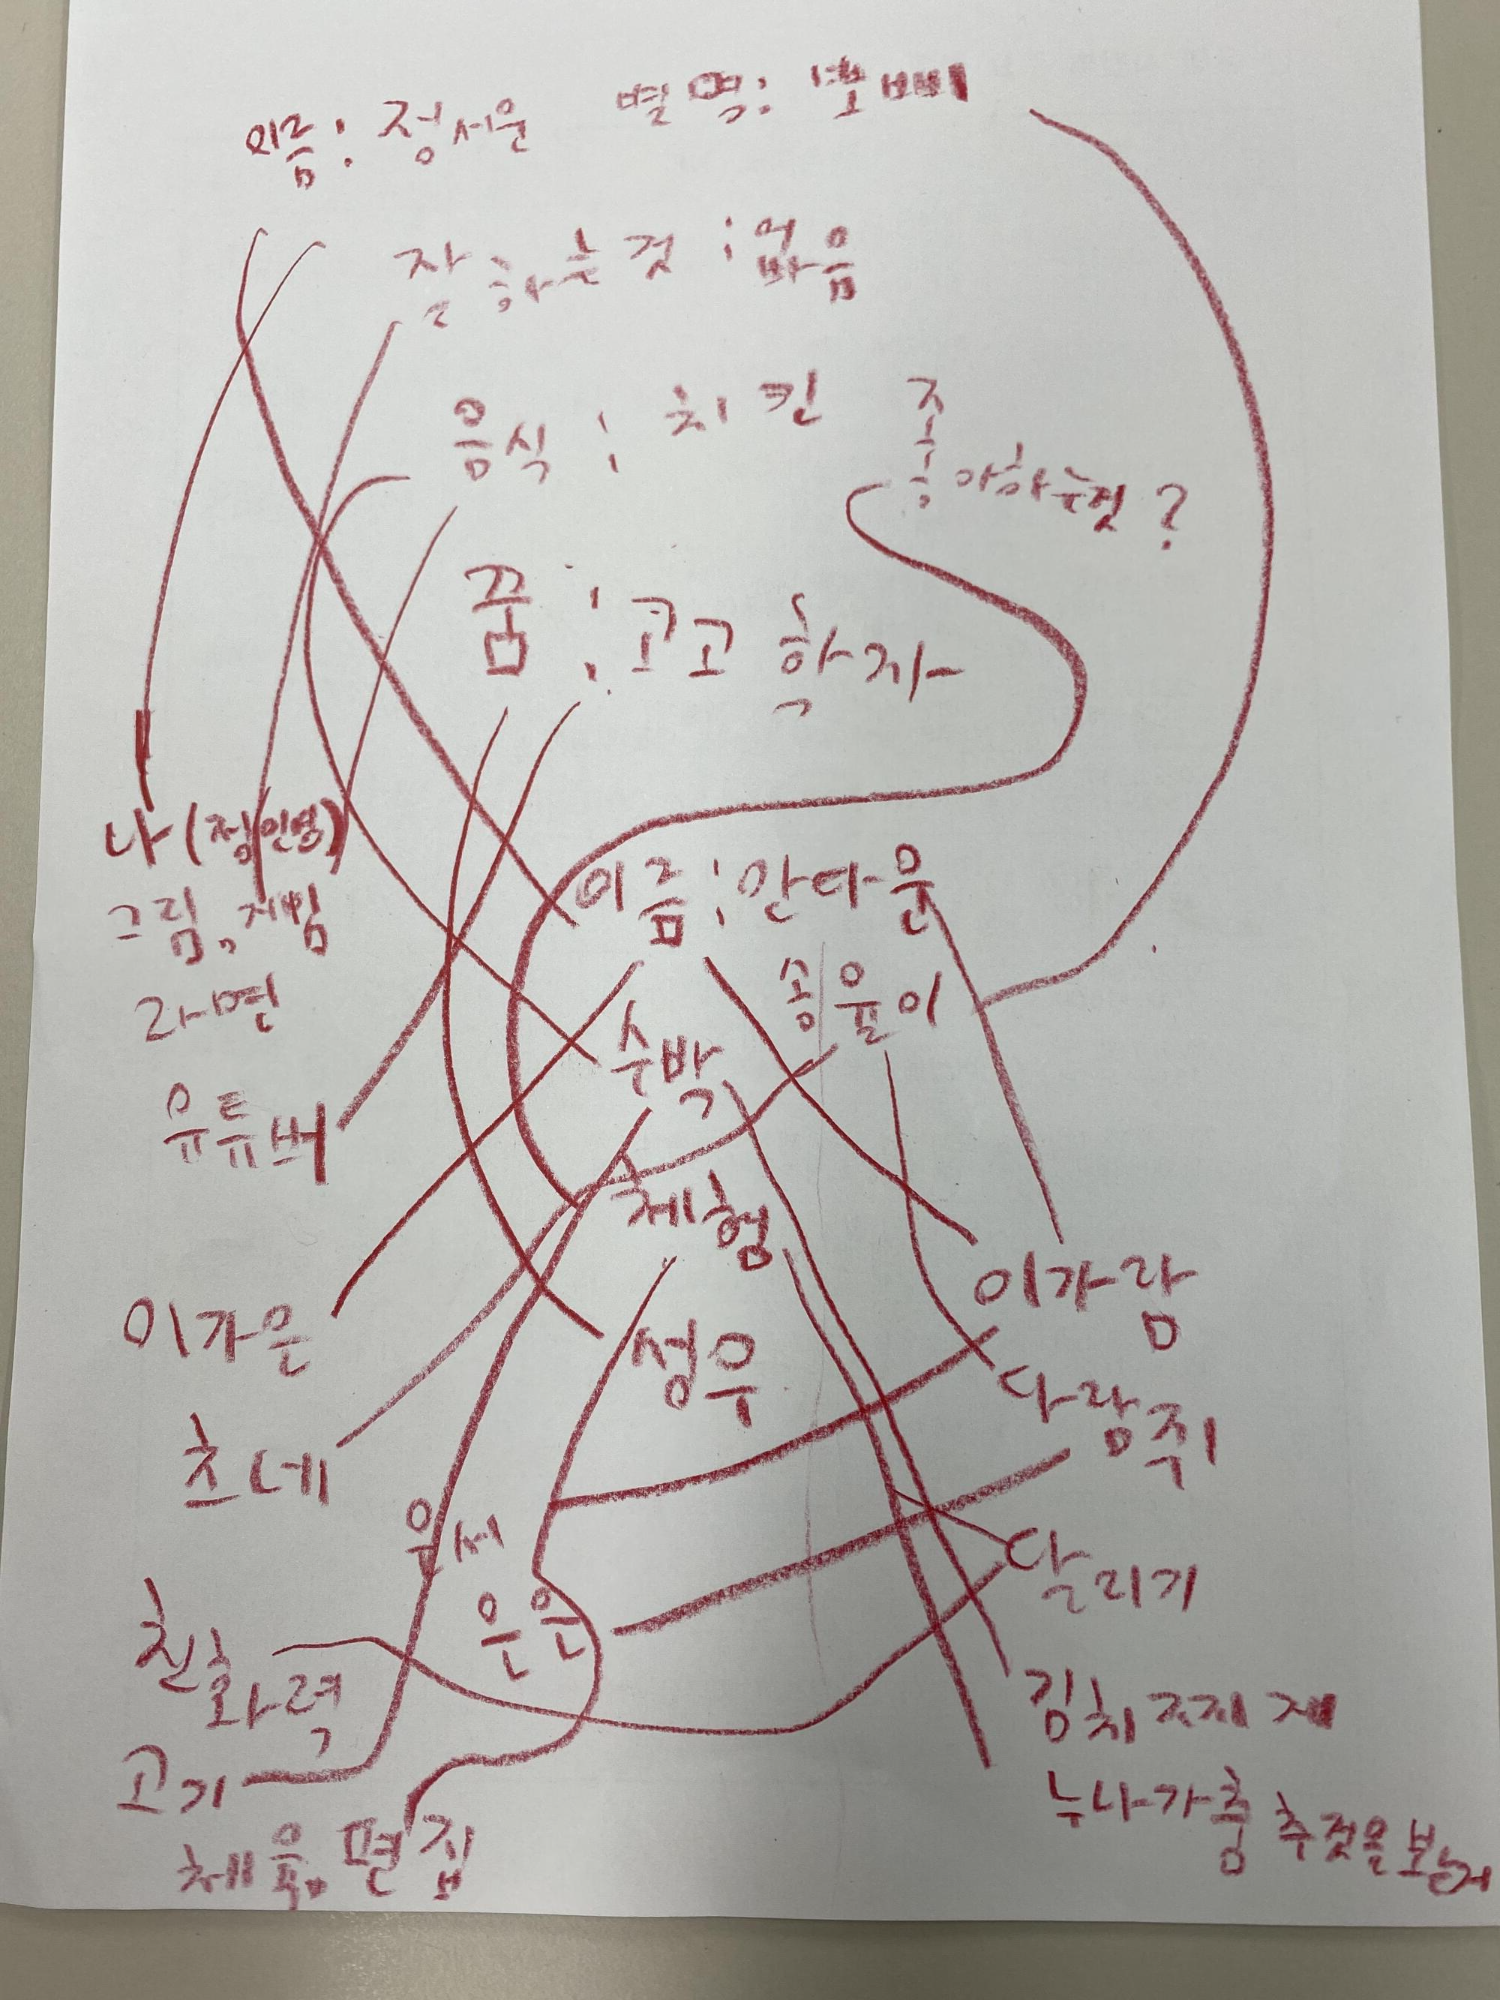 이름: 정서윤 별명: 뽀삐
잘하는것: 없음
음식: 치킨 좋아하는것?
꿈: 고고학자
나(정인영)
그림, 게임
라면
유튜버
이름: 안다윤
송윤이
수박
체험
성우
이가은
츠네
윤서
은은
친화력
고기
체육, 편집
이가람
다람쥐
달리기
김치찌개
누나가춤추것을보는거